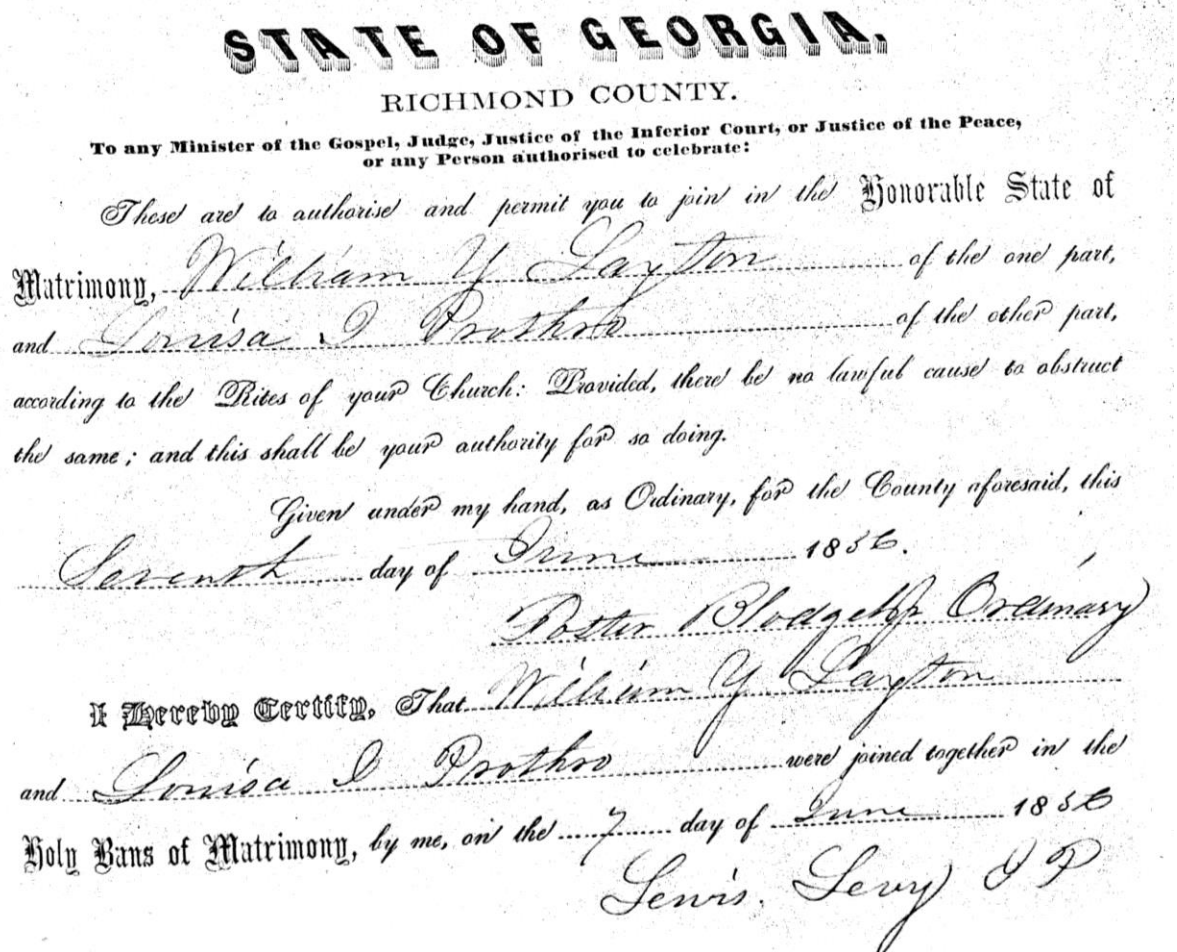 STATE OF GEORGIA.
RICHMOND COUNTY.
To any Minister of the Gospel, Judge, Justice of the Inferior Court, or Justice of the Peace,
or any Person authorised to celebrate:
These are to authorise and permit you to join in the Honorable State of
Matrimony, William Y Layton of the one part,
and Louisa I Prothro of the other part,
according to the Rites of your Church: Provided, there be no lawful cause to obstruct
the same; and this shall be your authority for so doing.
Given under my hand, as Ordinary, for the County aforesaid, this
Seventh day of June 1856.
Foster Blodget Jr Ordinary
I Hereby Certify, That William Y Layton
and Louisa I Prothro were joined together in the
Holy Bans of Matrimony, by me, on the 7 day of June 1856
Lewis. Levy J P